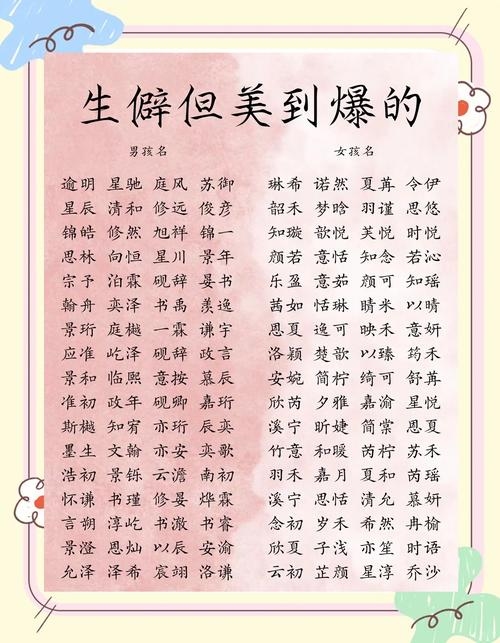 生僻但美到爆的
男孩名 女孩名
逾明 星驰 庭风 苏御 琳希 诺然 夏苒 令伊
星辰 清和 修远 俊彦 韶禾 梦晗 羽谨 思悠
锦皓 修然 旭祥 锦一 知璇 歆悦 芙悦 时悦
思林 向恒 星川 景年 颜若 意恬 知念 若沁
宗予 泊霖 砚辞 晏书 乐盈 意茹 颜可 知瑶
翰舟 奕泽 书禹 羡逸 茜如 恬琳 晴米 以晴
景珩 庭樾 一霖 谦宇 思夏 逸可 映禾 意妍
应淮 屹泽 砚辞 政言 洛颖 楚歆 以臻 筠禾
景和 临熙 意按 慕辰 安婉 简柠 绮可 舒苒
准初 政年 砚卿 嘉珩 欣芮 夕雅 嘉渝 星悦
斯樾 知宥 亦珩 辰奕 溪宁 昕婕 简棠 思夏
墨生 文翰 亦安 奕歌 竹意 和暖 芮柠 苏禾
浩初 景铄 云澹 南初 羽禾 嘉月 夏和 芮瑶
怀谦 书瑾 修晏 烨霖 溪宁 思恬 清允 慕妍
言朔 淳屹 书澈 书睿 念初 岁禾 希然 冉榆
景澄 思灿 以辰 安渝 欣夏 子浅 亦笙 时语
允泽 泽希 宸翊 洛谦 云初 芷颜 星淳 乔沙